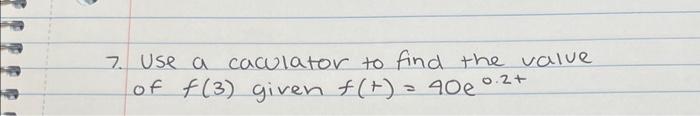 7. Use a caculator to find the value
of f(3) given f(t) = 40e^0.2t